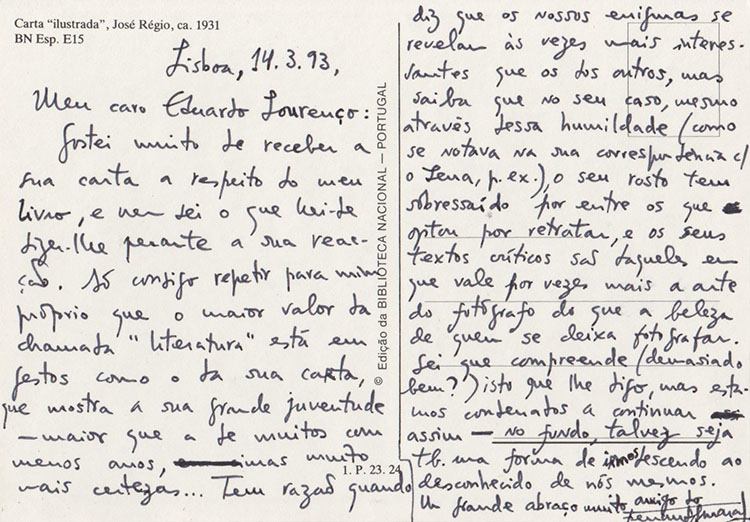 Carta "ilustrada", José Régio, ca. 1931
BN Esp. E15
Lisboa, 14.3.93,
Meu caro Eduardo Lourenço:
Gostei muito de receber a
sua carta a respeito do meu
livro, e nem sei o que hei-de
dizer-lhe perante a sua reac-
ção. Só consigo repetir para mim
próprio que o maior valor da
chamada "literatura" está em
gestos como o da sua carta,
que mostra a sua grande juventude
—maior que a de muitos com
menos anos, mas muito
mais certezas... Tem razão quando
© Edição da BIBLIOTECA NACIONAL — PORTUGAL
1. P. 23. 24
diz que os nossos enigmas se
revelam às vezes mais interes-
santes que os dos outros, mas
saiba que no seu caso, mesmo
através dessa humildade (como
se notava na sua correspondência c/
o Sena, p. ex.), o seu rosto tem
sobressaído por entre os que
optou por retratar, e os seus
textos críticos são daqueles em
que vale por vezes mais a arte
do fotógrafo do que a beleza
de quem se deixa fotografar.
Sei que compreende (demasiado
bem?) isto que lhe digo, mas esta-
mos condenados a continuar
assim — no fundo, talvez seja
tb. uma forma de irmos descendo ao
desconhecido de nós mesmos.
Um grande abraço muito amigo do